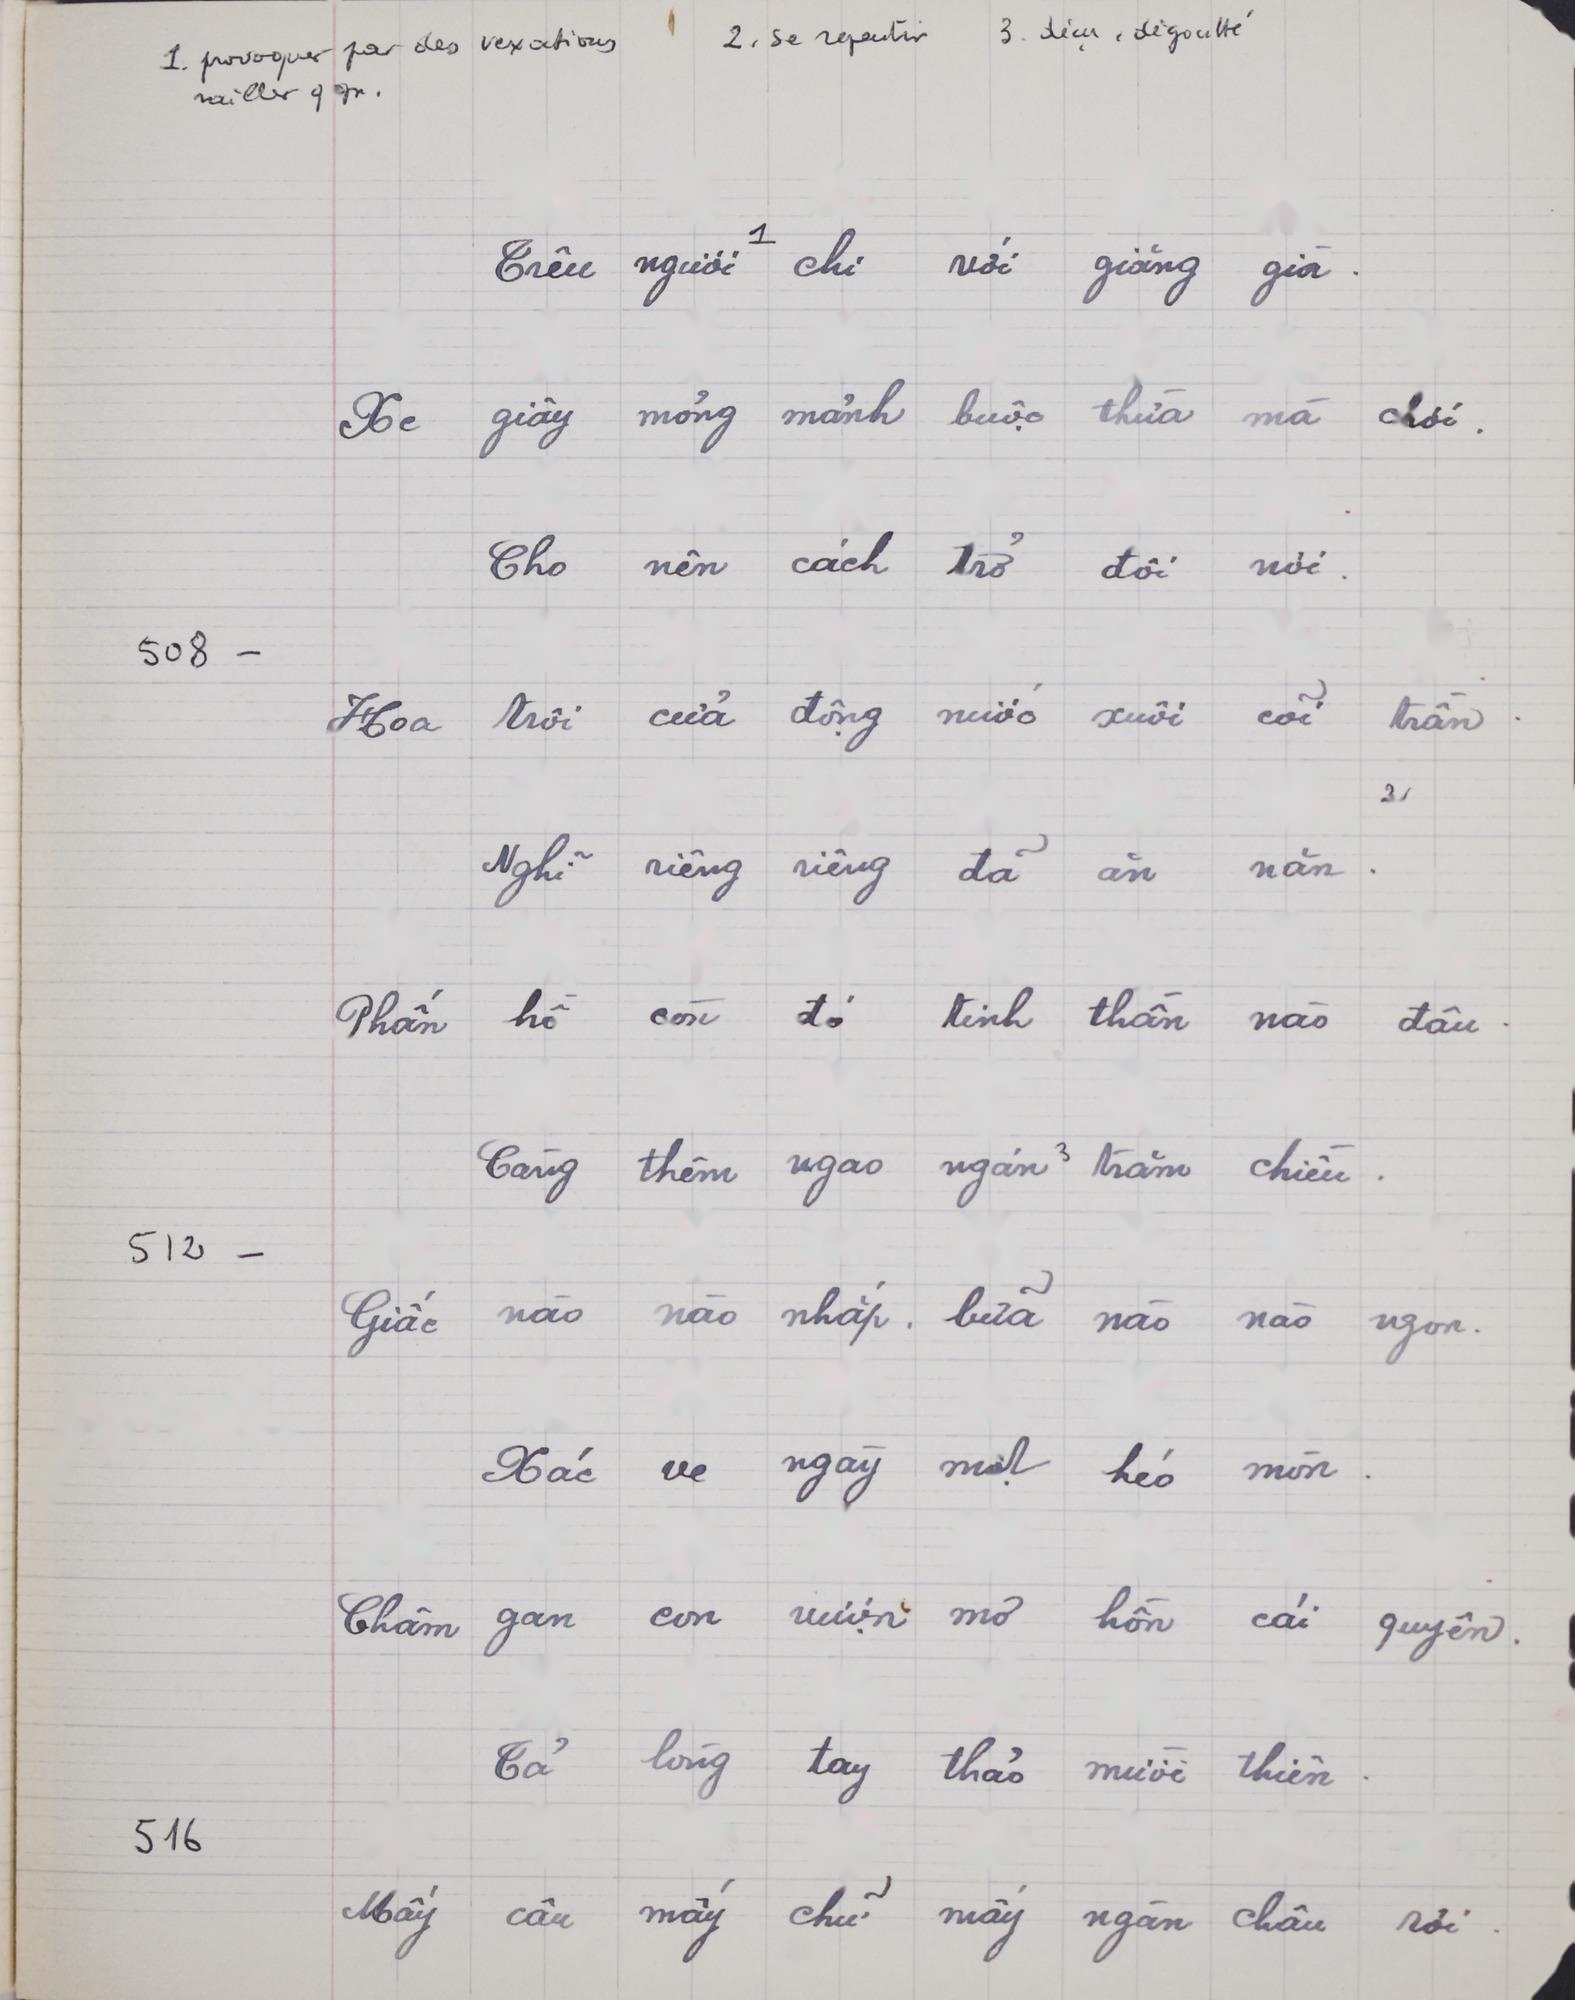 1. provoquer par des vexations 2. se repentir 3. déçu, dégoutté
railler qqn.
Trêu người¹ chi với giăng già.
Xe giây mỏng mảnh buộc thừa mà chơi.
Cho nên cách trở đôi nơi.
508 –
Hoa trôi cửa động nước xuôi cõi trần.
2.
Nghĩ riêng riêng đã ăn năn.
Phấn hồ còn đó tinh thần nào đâu.
Càng thêm ngao ngán³ trăm chiều.
512 –
Giấc nào nào nhắp. bữa nào nào ngon.
Xác ve ngày một héo mòn.
Châm gan con vượn mơ hồn cái quyên.
Tả lòng tay thảo mười thiên.
516
Mấy câu mấy chữ mấy ngàn châu rơi.